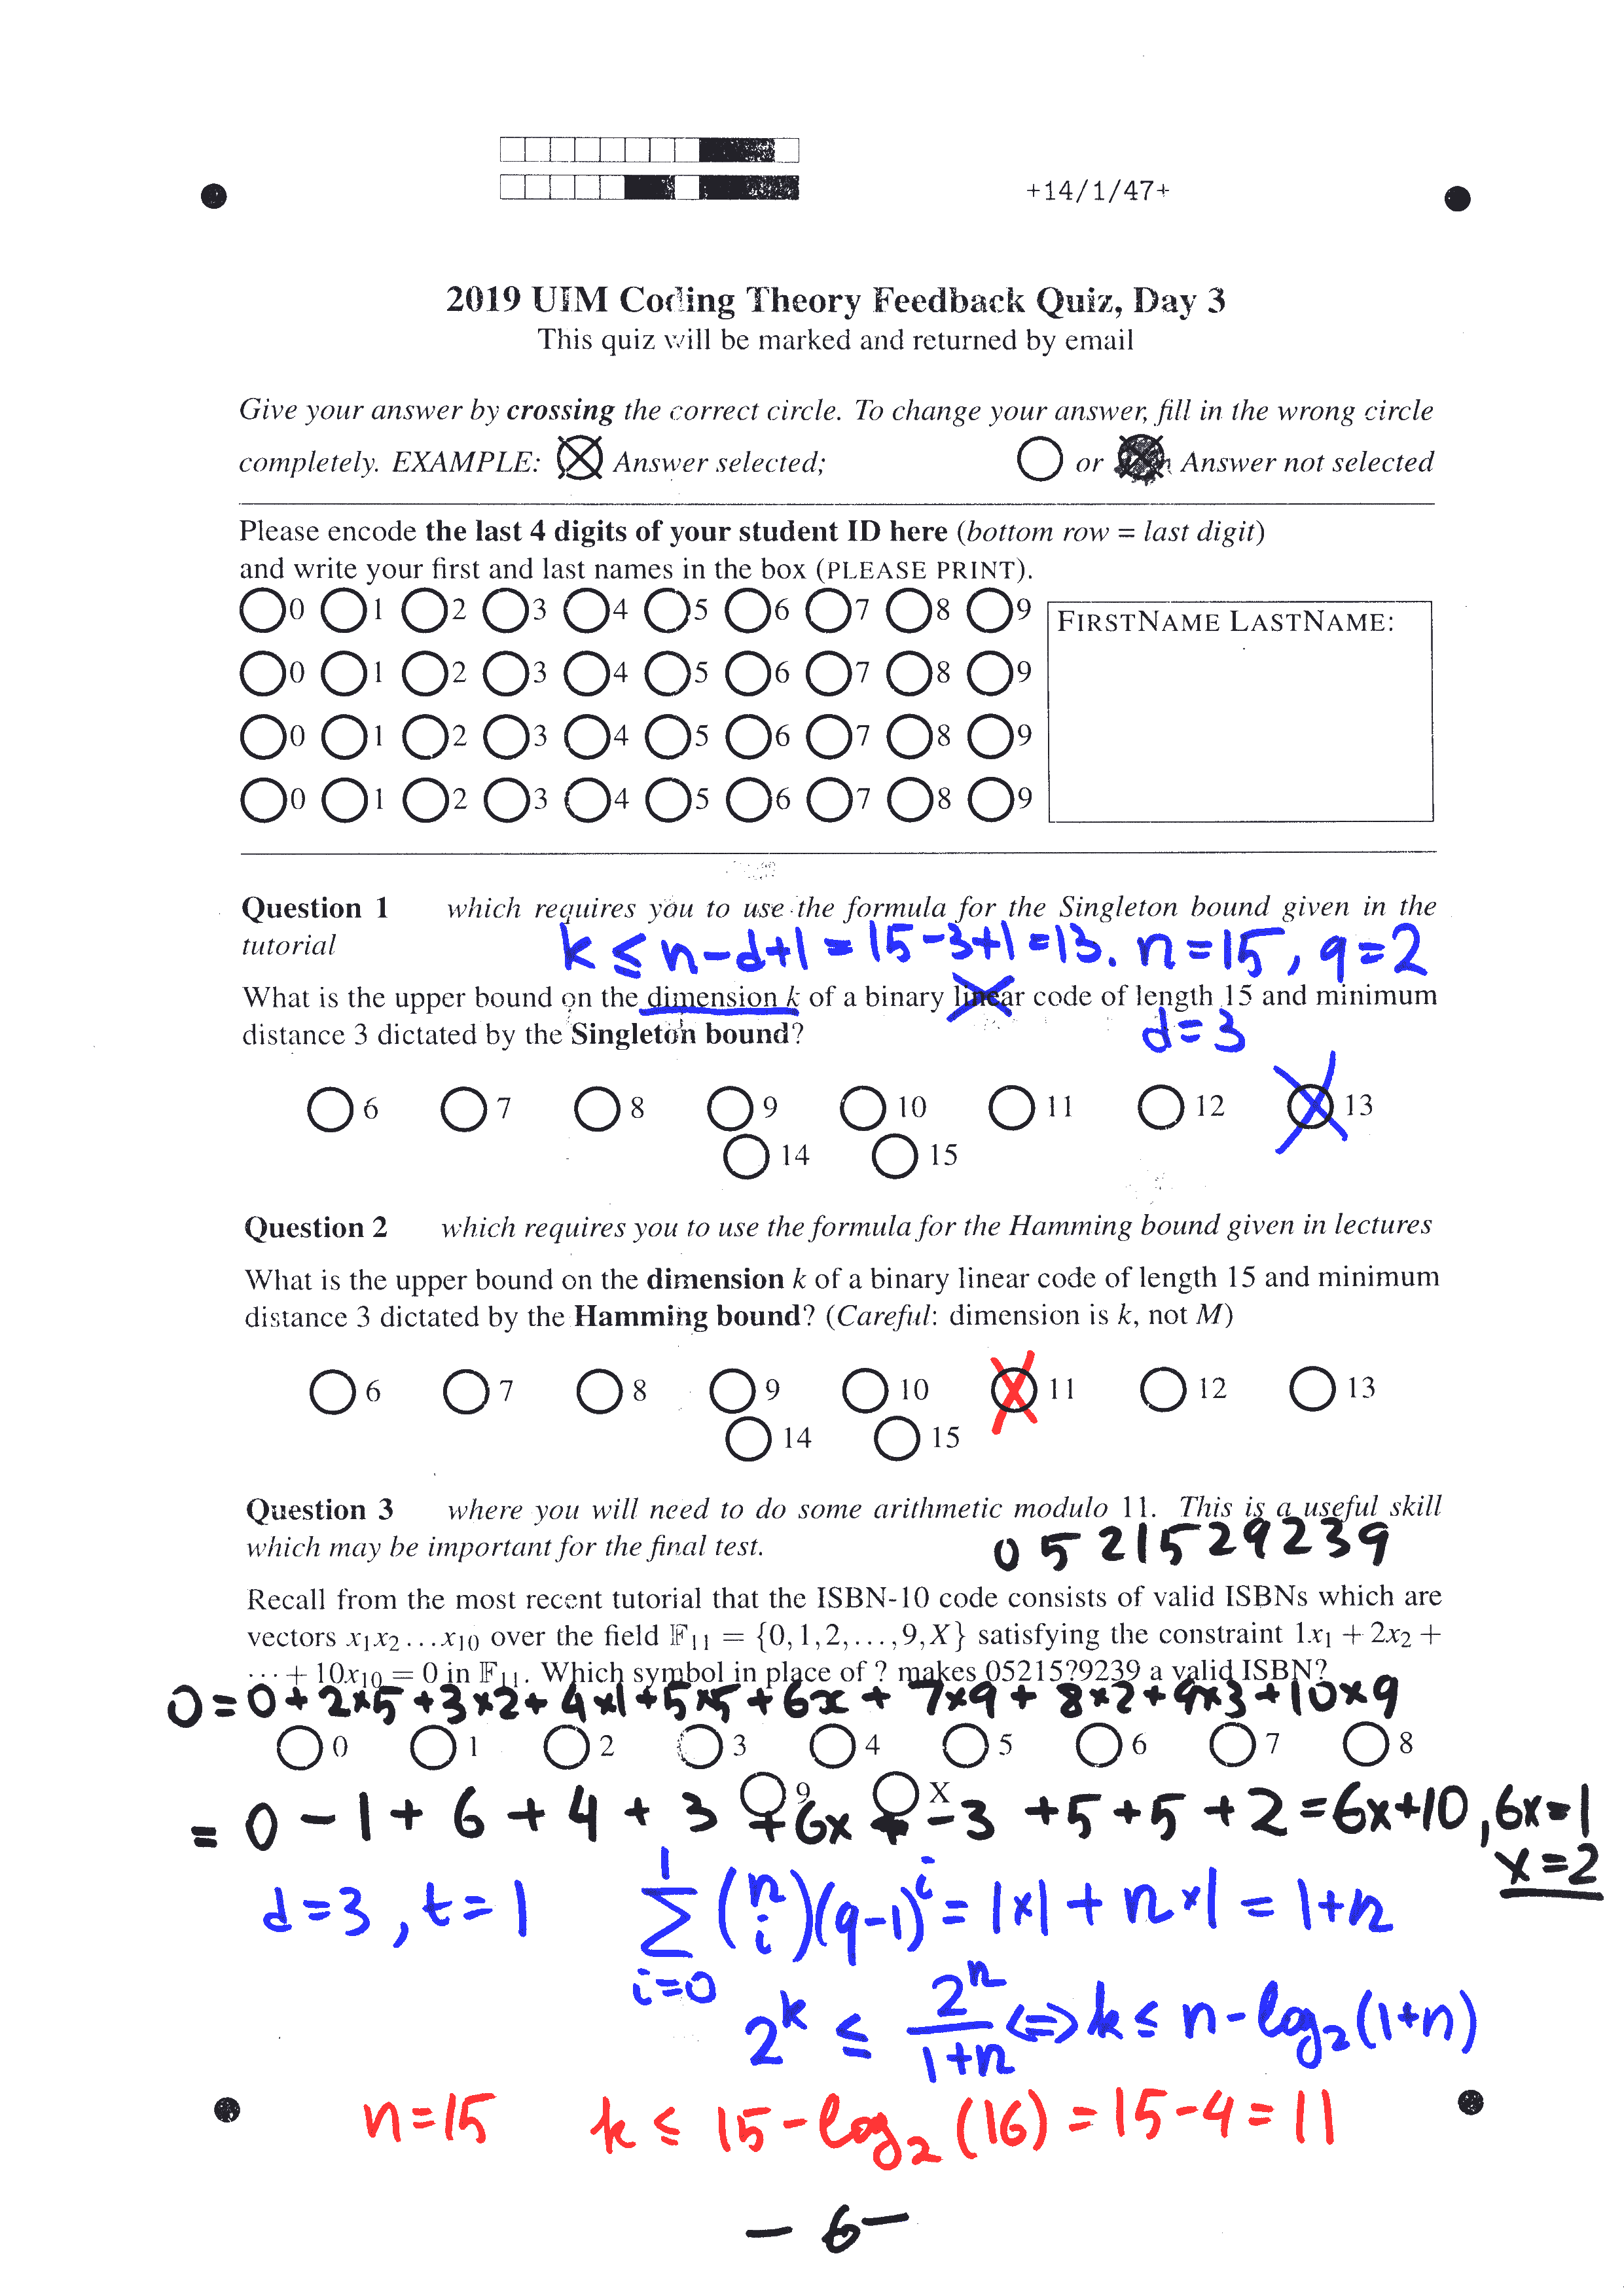 +14/1/47+
2019 UIM Coding Theory Feedback Quiz, Day 3
This quiz will be marked and returned by email
Give your answer by crossing the correct circle. To change your answer, fill in the wrong circle
completely. EXAMPLE: Answer selected; or Answer not selected
Please encode the last 4 digits of your student ID here (bottom row = last digit)
and write your first and last names in the box (PLEASE PRINT).
0 1 2 3 4 5 6 7 8 9
FIRSTNAME LASTNAME:
0 1 2 3 4 5 6 7 8 9
0 1 2 3 4 5 6 7 8 9
0 1 2 3 4 5 6 7 8 9
Question 1 which requires you to use the formula for the Singleton bound given in the
tutorial
k ≤ n-d+1 = 15-3+1 = 13. n=15, q=2
What is the upper bound on the dimension k of a binary linear code of length 15 and minimum
distance 3 dictated by the Singleton bound?
d=3
6 7 8 9 10 11 12 13
14 15
Question 2 which requires you to use the formula for the Hamming bound given in lectures
What is the upper bound on the dimension k of a binary linear code of length 15 and minimum
distance 3 dictated by the Hamming bound? (Careful: dimension is k, not M)
6 7 8 9 10 11 12 13
14 15
Question 3 where you will need to do some arithmetic modulo 11. This is a useful skill
which may be important for the final test.
0 5 21529239
Recall from the most recent tutorial that the ISBN-10 code consists of valid ISBNs which are
vectors x₁x₂...x₁₀ over the field 𝔽₁₁ = {0,1,2,...,9,X} satisfying the constraint 1x₁ + 2x₂ +
··· + 10x₁₀ = 0 in 𝔽₁₁. Which symbol in place of ? makes 05215?9239 a valid ISBN?
0 = 0 + 2×5 + 3×2 + 4×1 + 5×5 + 6x + 7×9 + 8×2 + 9×3 + 10×9
0 1 2 3 4 5 6 7 8
9 X
= 0 - 1 + 6 + 4 + 3 + 6x - 3 + 5 + 5 + 2 = 6x+10, 6x=1
x=2
d=3, t=1 ∑_{i=0}^{1} (n i)(q-1)^i = 1×1 + n×1 = 1+n
2^k ≤ 2^n/(1+n) <=> k ≤ n-log₂(1+n)
n=15 k ≤ 15-log₂(16) = 15-4 = 11
- 6 -